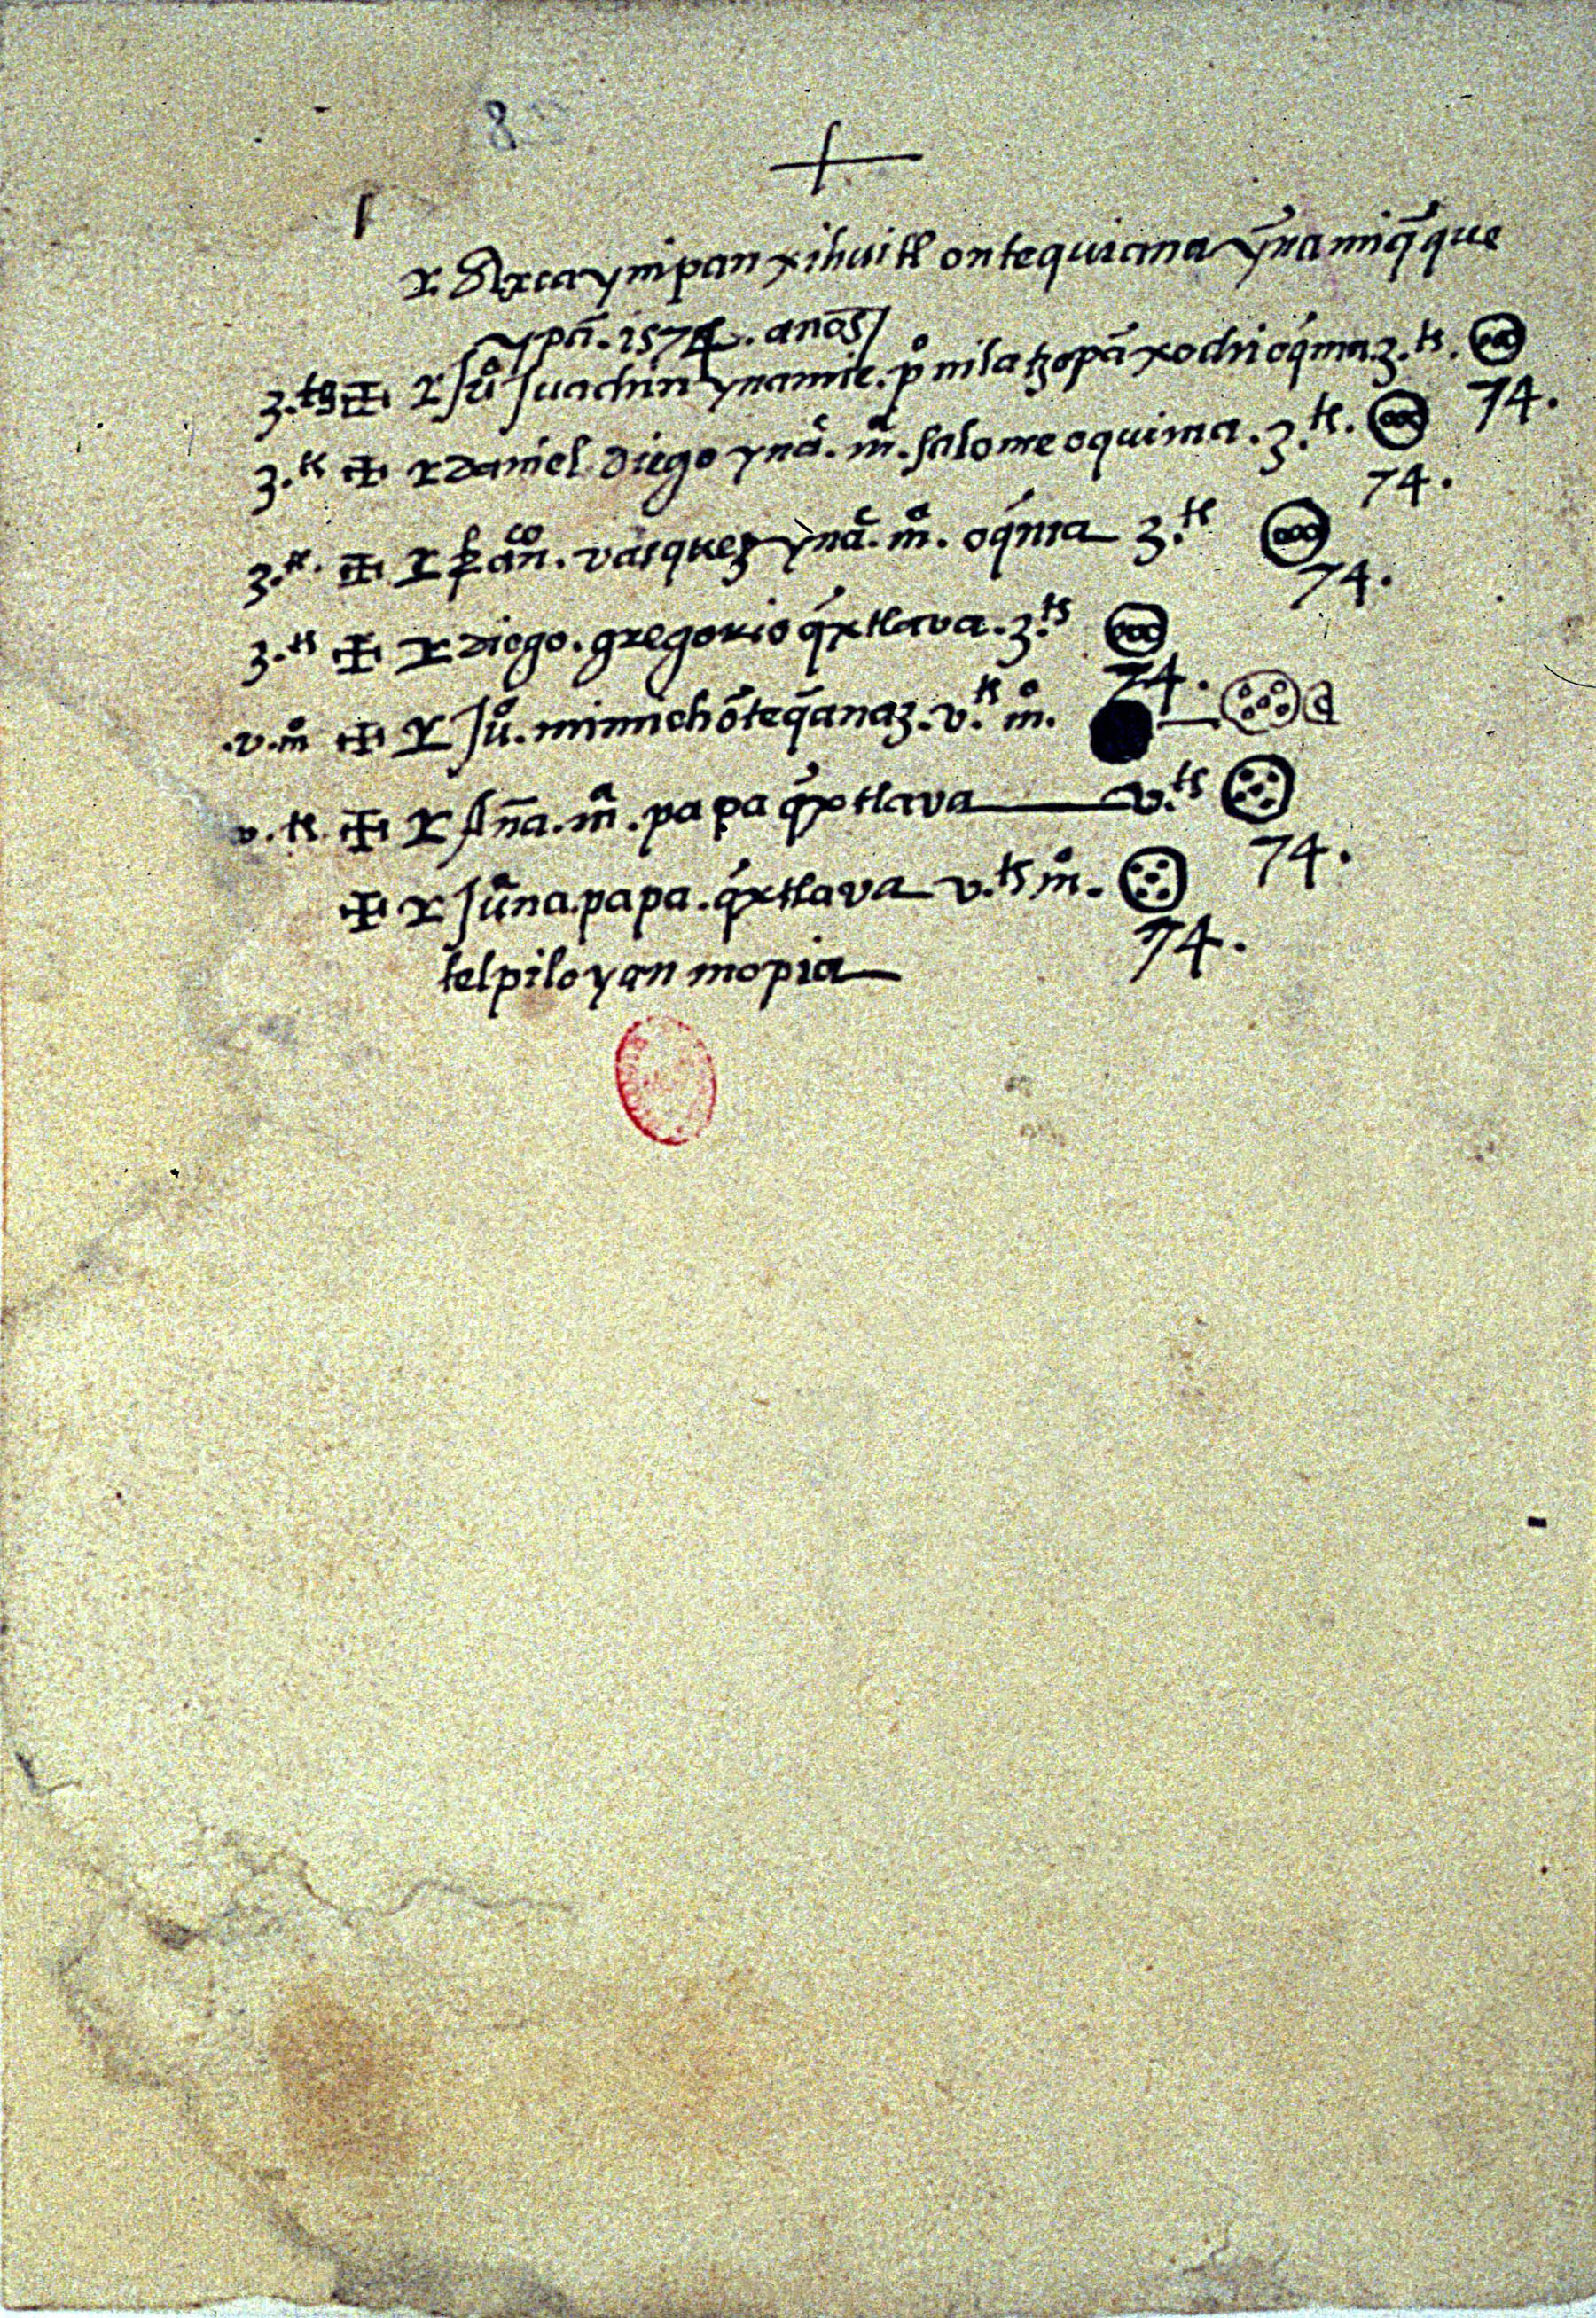 8
r. Axca ynipan xihuitl ontequiana yña miq̃que
ypã. 1574. anõs
3.ts ✠ r Juº Juachin ynamic. pº nila tzopã xochi oq́ma. 3.ts.
74.
3.ts ✠ r Daniel Diego ynãc. mª. salome oquima. 3.ts.
74.
3.ts. ✠ r franco. vasquez ynãc. mª. oq́ma 3.ts
74.
3.ts ✠ r Diego. gregorio q́xtlava. 3.ts
74.
.v. mº ✠ r Juº. mimich õteq̃anaz. v.ts mº.
v. ts. ✠ r Añna. mª. papa q́xtlava v.ts
74.
✠ r Juªna. papa. q́xtlava v.ts mº.
74.
telpiloyan mopia